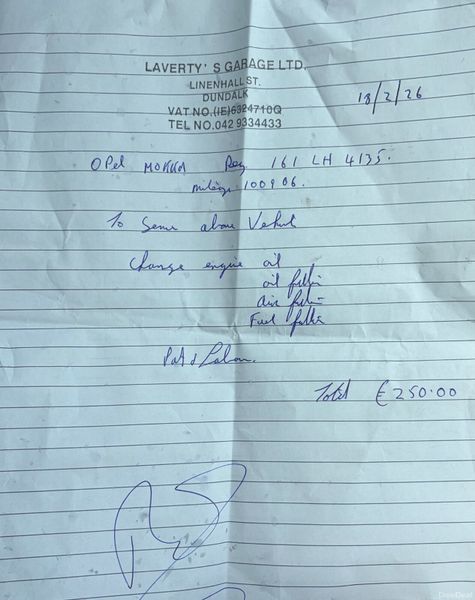 LAVERTY'S GARAGE LTD.
LINENHALL ST.
DUNDALK
VAT NO.(IE)6324710Q
TEL NO.042 9334433
18/2/26
Opel MOKKA Reg. 161 LH 4135.
Mileage 100906.
To Service above Vehicle
Change engine oil
oil filter
Air filter
Fuel filter
Parts & Labour.
Total €250.00
DoneDeal